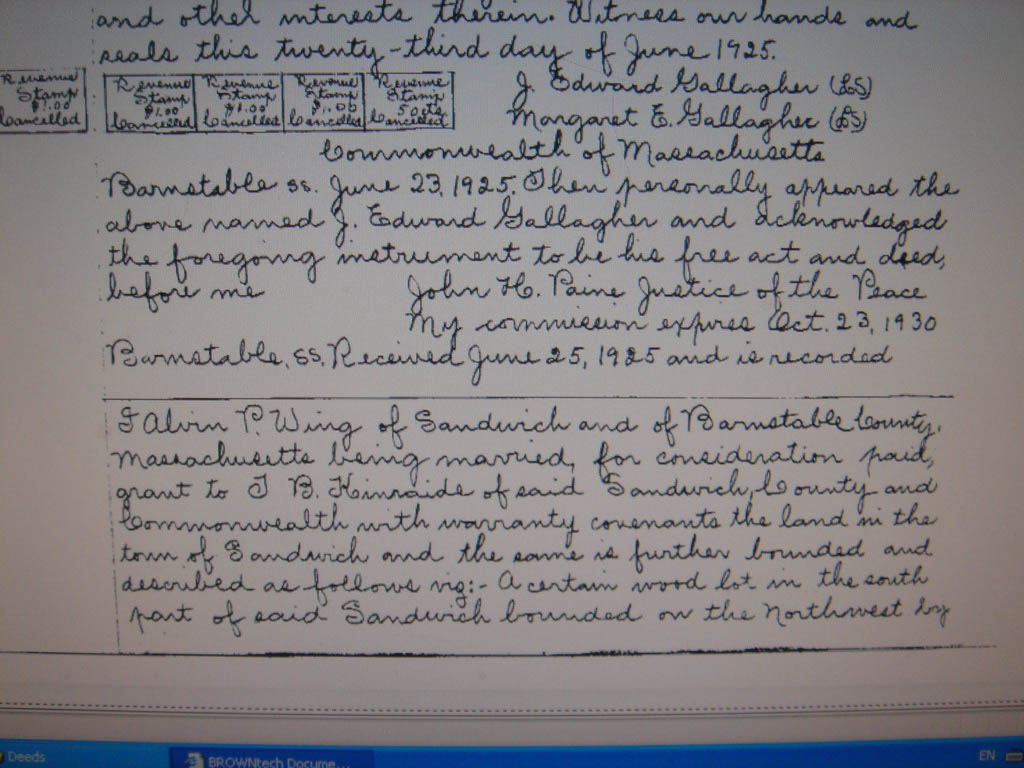 and other interests therein. Witness our hands and
seals this twenty-third day of June 1925.
Revenue Stamp $1.00 Cancelled
Revenue Stamp $1.00 Cancelled
Revenue Stamp $1.00 Cancelled
Revenue Stamp $1.00 Cancelled
Revenue Stamp 50cts Cancelled
J. Edward Gallagher (LS)
Margaret E. Gallagher (LS)
Commonwealth of Massachusetts
Barnstable ss. June 23, 1925. Then personally appeared the
above named J. Edward Gallagher and acknowledged
the foregoing instrument to be his free act and deed,
before me John H. Paine Justice of the Peace
My commission expires Oct. 23, 1930
Barnstable, ss. Received June 25, 1925 and is recorded
I Alvin P. Wing of Sandwich and of Barnstable County,
Massachusetts being married, for consideration paid,
grant to T B. Kinraide of said Sandwich, County and
Commonwealth with warranty covenants the land in the
town of Sandwich and the same is further bounded and
described as follows viz:- A certain wood lot in the south
part of said Sandwich bounded on the Northwest by
Deeds
BROWNtech Docume...
EN